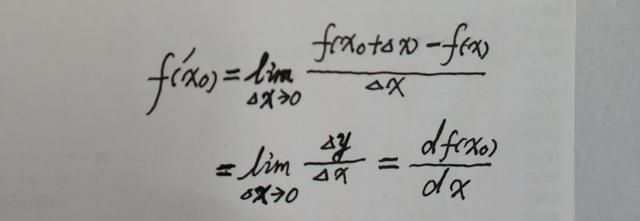 f'(x₀) = lim_{Δx→0} \frac{f(x₀+Δx)-f(x)}{Δx}
= lim_{Δx→0} \frac{Δy}{Δx} = \frac{df(x₀)}{dx}